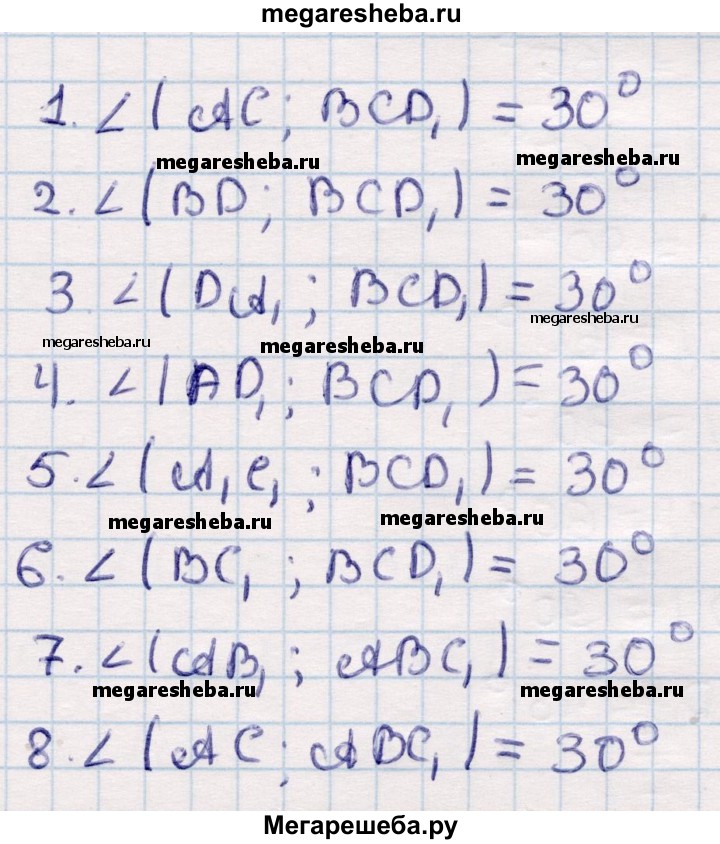 megaresheba.ru
1. ∠(AC; BCD₁) = 30°
megaresheba.ru megaresheba.ru
2. ∠(BD; BCD₁) = 30°
3 ∠(DA₁; BCD₁) = 30°
megaresheba.ru megaresheba.ru megaresheba.ru
4. ∠(AD₁; BCD₁) = 30°
5. ∠(A₁C₁; BCD₁) = 30°
megaresheba.ru megaresheba.ru
6. ∠(BC₁; BCD₁) = 30°
7. ∠(AB₁; ABC₁) = 30°
megaresheba.ru megaresheba.ru
8. ∠(AC; ABC₁) = 30°
Мегарешеба.ру